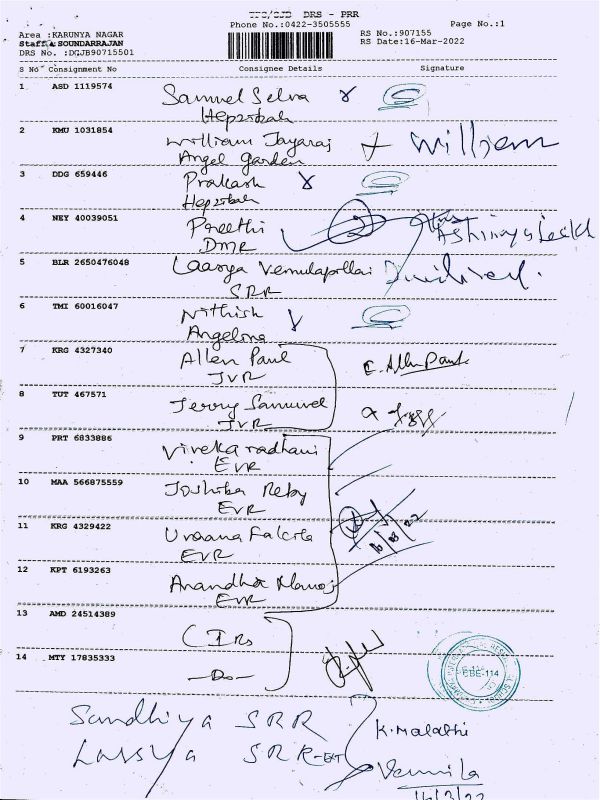 TPC/CJB DRS - PRR
Phone No.:0422-3505555
Page No.:1
Area :KARUNYA NAGAR
Staff :SOUNDARRAJAN
DRS No. :DGJB90715501
RS No.:907155
RS Date:16-Mar-2022
S No Consignment No Consignee Details Signature
1 ASD 1119574 Samuel Selva
Hepzibah
2 KMU 1031854 William Jayaraj William
Angel Garden
3 DDG 659446 Prakash
Hepzibah
4 NEY 40039051 Preethi
DMR
5 BLR 2650476048 Laasya Vemulapallai
SRR
6 TMI 60016047 Nithish
Angelina
7 KRG 4327340 Allen Paul E. Allen Paul
JVR
8 TUT 467571 Jerry Samuvel
JVR
9 PRT 6833886
EVR
10 MAA 566875559 Joshiba Reby
EVR
11 KRG 4329422
EVR
12 KPT 6193263 Anandha Manoj
EVR
16/03/22
13 AMD 24514389 CIRs
14 MTY 17835333 —Do—
CBE-114
Sandhiya SRR K. Malathi
Lassya SRR-EXT Vennila
16/3/22